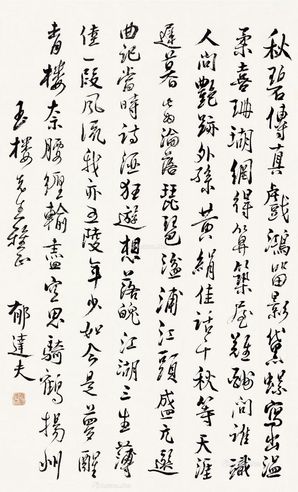 秋碧傳真戲鴻留影黛螺寫出溫
柔喜珊瑚網得算築屋難酬問誰識
人間艷跡外孫黃絹佳話千秋等天涯
遲暮淪落琵琶湓浦江頭盛元選
曲記當時詩酒狂遊想落魄江湖三生薄
倖一段風流我亦五陵年少如今是夢醒
青樓奈腰纏輸盡空思騎鶴揚州
玉樓先生雅正
郁達夫